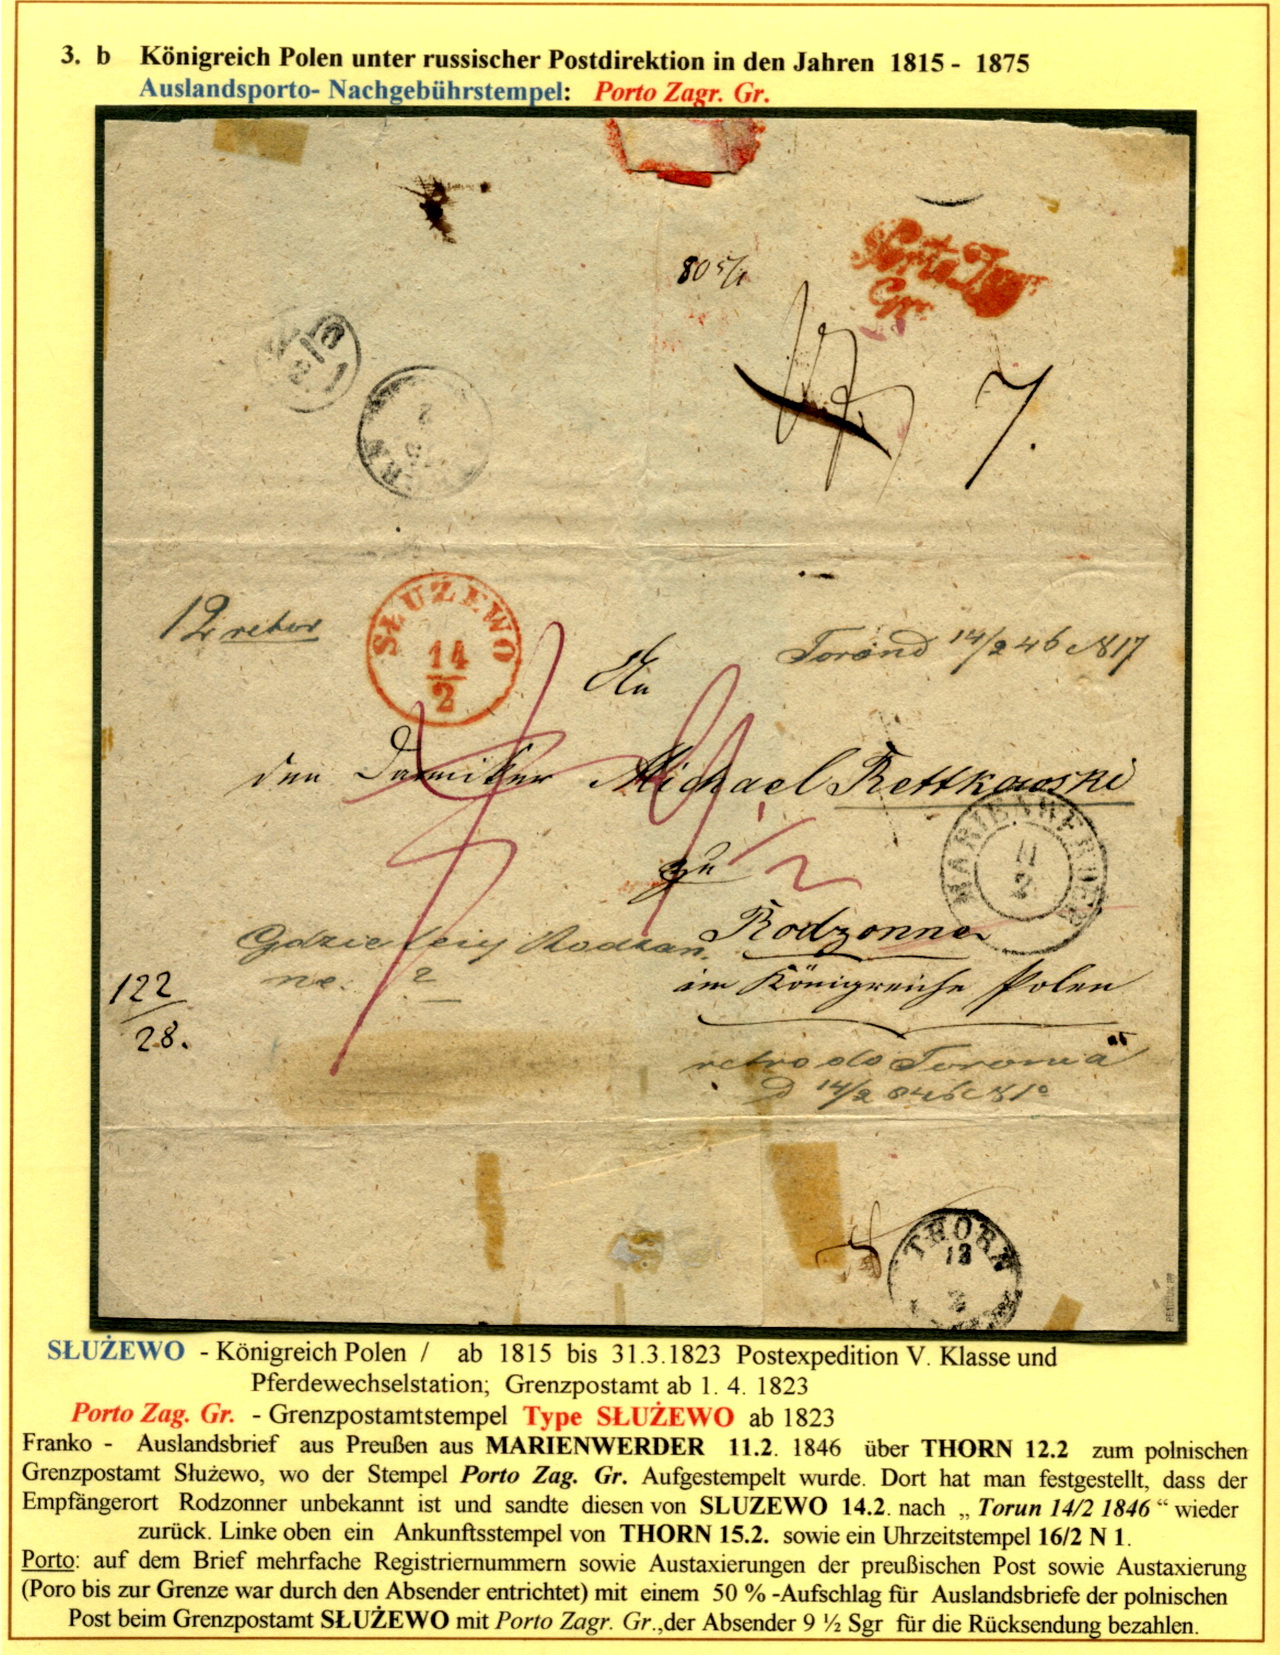 3. b Königreich Polen unter russischer Postdirektion in den Jahren 1815 - 1875
Auslandsporto- Nachgebührstempel: Porto Zagr. Gr.
80 5/1
Porto Zagr
Gr.
7.
12 retour
SŁUŻEWO
14
2
An
14/2 46 N 17
den Michael Rettkowski
MARIENWERDER
11
2
zu
Rodzonne
122
28.
im Königreiche Polen
retro do Torunia
D 14/2 846 N 1
THORN
2
SŁUŻEWO - Königreich Polen / ab 1815 bis 31.3.1823 Postexpedition V. Klasse und
Pferdewechselstation; Grenzpostamt ab 1. 4. 1823
Porto Zag. Gr. - Grenzpostamtstempel Type SŁUŻEWO ab 1823
Franko - Auslandsbrief aus Preußen aus MARIENWERDER 11.2. 1846 über THORN 12.2 zum polnischen
Grenzpostamt Służewo, wo der Stempel Porto Zag. Gr. Aufgestempelt wurde. Dort hat man festgestellt, dass der
Empfängerort Rodzonner unbekannt ist und sandte diesen von SLUZEWO 14.2. nach „ Torun 14/2 1846 “ wieder
zurück. Linke oben ein Ankunftsstempel von THORN 15.2. sowie ein Uhrzeitstempel 16/2 N 1.
Porto: auf dem Brief mehrfache Registriernummern sowie Austaxierungen der preußischen Post sowie Austaxierung
(Poro bis zur Grenze war durch den Absender entrichtet) mit einem 50 % -Aufschlag für Auslandsbriefe der polnischen
Post beim Grenzpostamt SŁUŻEWO mit Porto Zagr. Gr.,der Absender 9 ½ Sgr für die Rücksendung bezahlen.